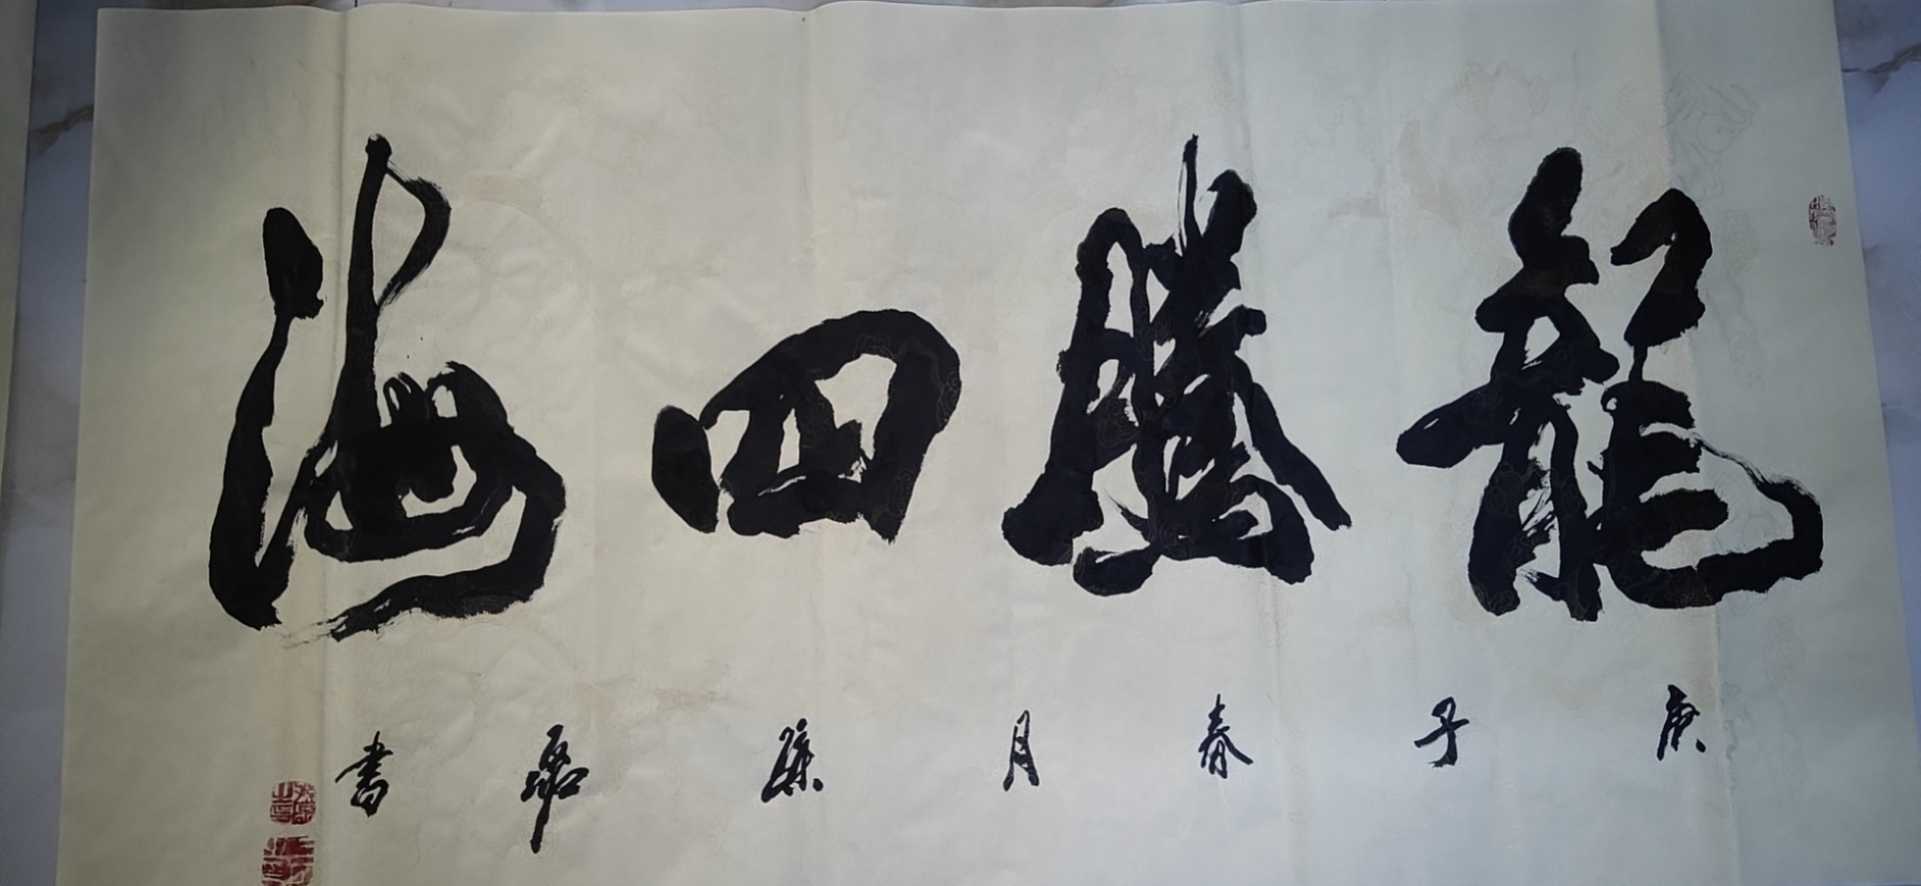 龍騰四海
庚子春月
書